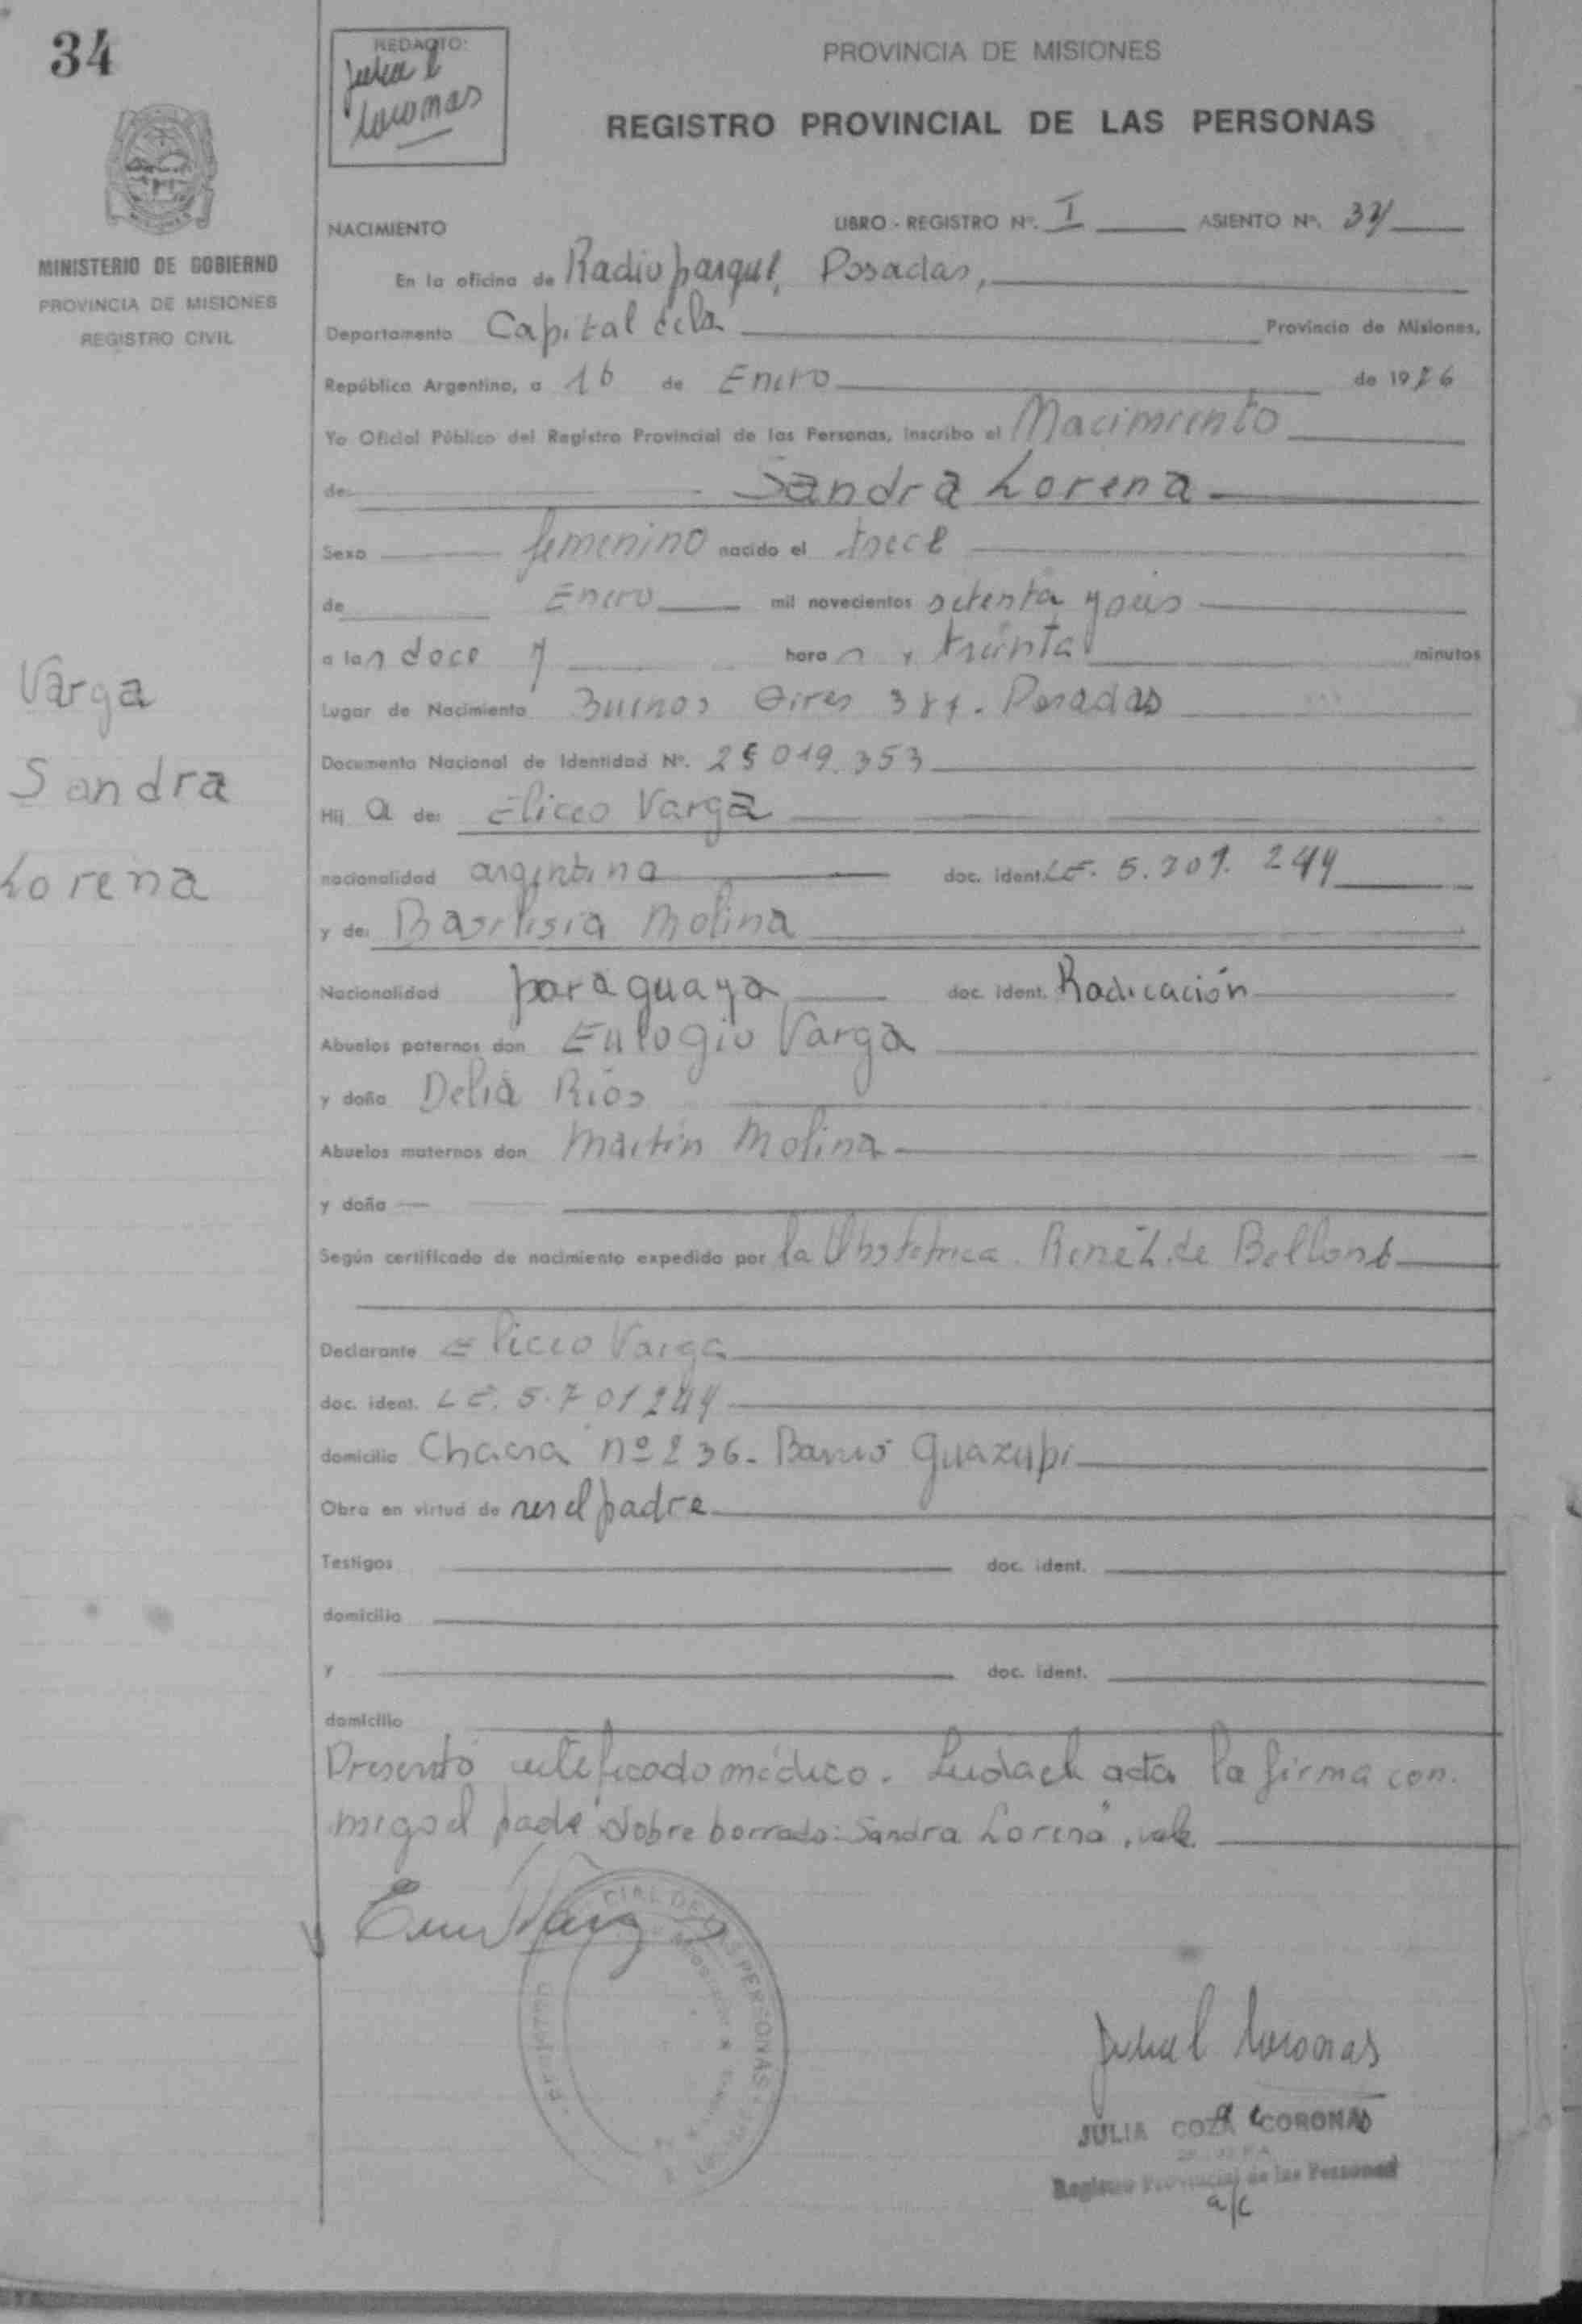 34
REDACTO:
Julia C
Coronas
PROVINCIA DE MISIONES
REGISTRO PROVINCIAL DE LAS PERSONAS
MINISTERIO DE GOBIERNO
PROVINCIA DE MISIONES
REGISTRO CIVIL
NACIMIENTO
LIBRO - REGISTRO Nº. I ASIENTO Nº. 34
En la oficina de Radioparque, Posadas,
Departamento Capital de la Provincia de Misiones,
República Argentina, a 16 de Enero de 1976
Yo Oficial Público del Registro Provincial de las Personas, inscribo el Nacimiento
de: Sandra Lorena
Sexo femenino nacido el trece
de Enero mil novecientos setenta y seis
a las doce y hora s y treinta minutos
Lugar de Nacimiento Buenos Aires Posadas
Documento Nacional de Identidad Nº. 25 019.353
Hij a de: Eliceo Varga
nacionalidad argentina doc. ident. LE. 5.701.244
y de: Basilisia Molina
Nacionalidad paraguaya doc. ident. Radicación
Abuelos paternos don Eulogio Varga
y doña Delia Ríos
Abuelos maternos don Martín Molina
y doña
Según certificado de nacimiento expedido por la Obstetrica. Reneé L. de Bellone
Declarante Eliceo Varga
doc. ident. LE. 5.701244
domicilio Chacra nº 236- Barrio Guazupi
Obra en virtud de ser el padre
Testigos doc. ident.
domicilio
y doc. ident.
domicilio
Presentó certificado médico. Leida el acta la firma con-
migo el padre sobre borrado: "Sandra Lorena", vale.
Varga
Sandra
Lorena
Julia C Coronas
JULIA COZA CORONAS
Registro Provincial de las Personas
a/c